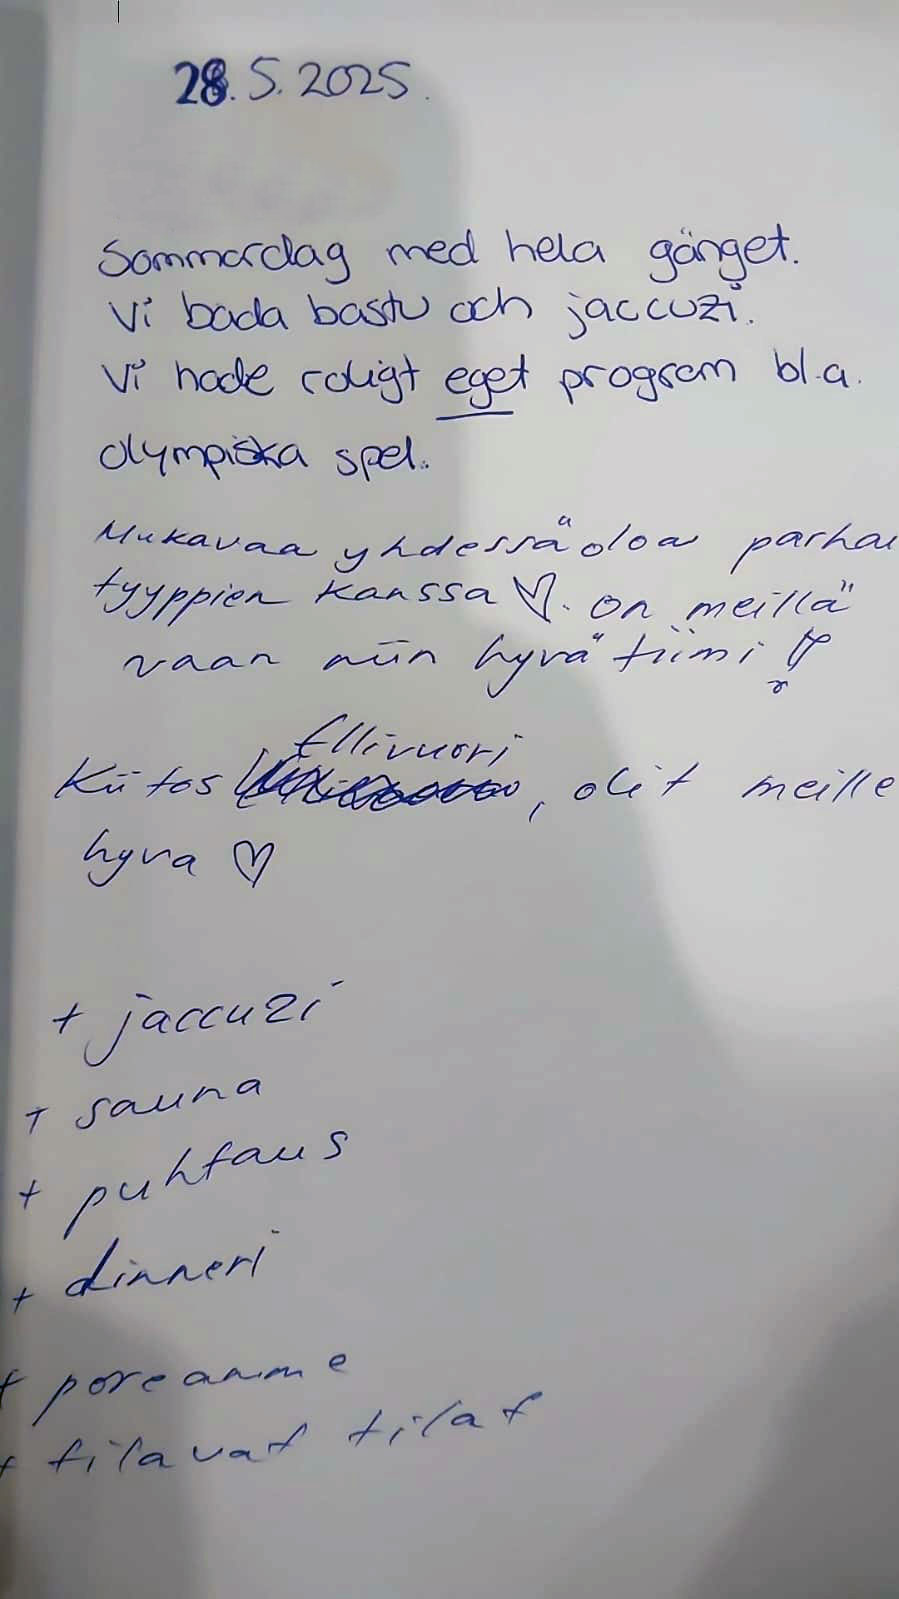 28.5.2025.
Sommardag med hela gänget.
Vi bada bastu och jaccuzi.
Vi hade roligt eget program bl.a.
olympiska spel.
Mukavaa yhdessäoloa parhai
tyyppien kanssa ♡. On meillä
vaan niin hyvä tiimi!
Ellivuori
Kiitos , olit meille
hyvä ♡
+ jaccuzi
+ sauna
+ puhtaus
+ dinneri
+ poreamme
+ tilavat tilat